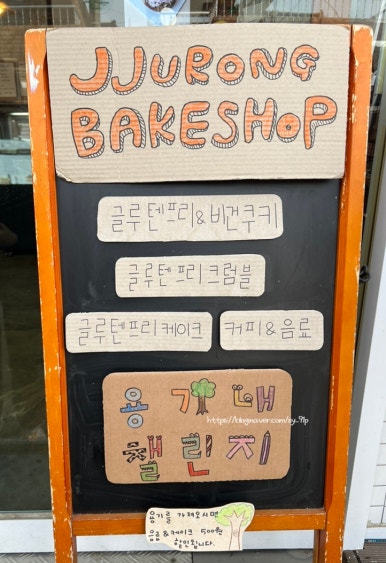 JJURONG
BAKESHOP
글루텐프리&비건쿠키
글루텐프리크럼블
글루텐프리케이크
커피&음료
용기내
https://blog.naver.com/sy_91p
챌린지
용기를 가져오시면
음료&케이크 500원
할인됩니다.